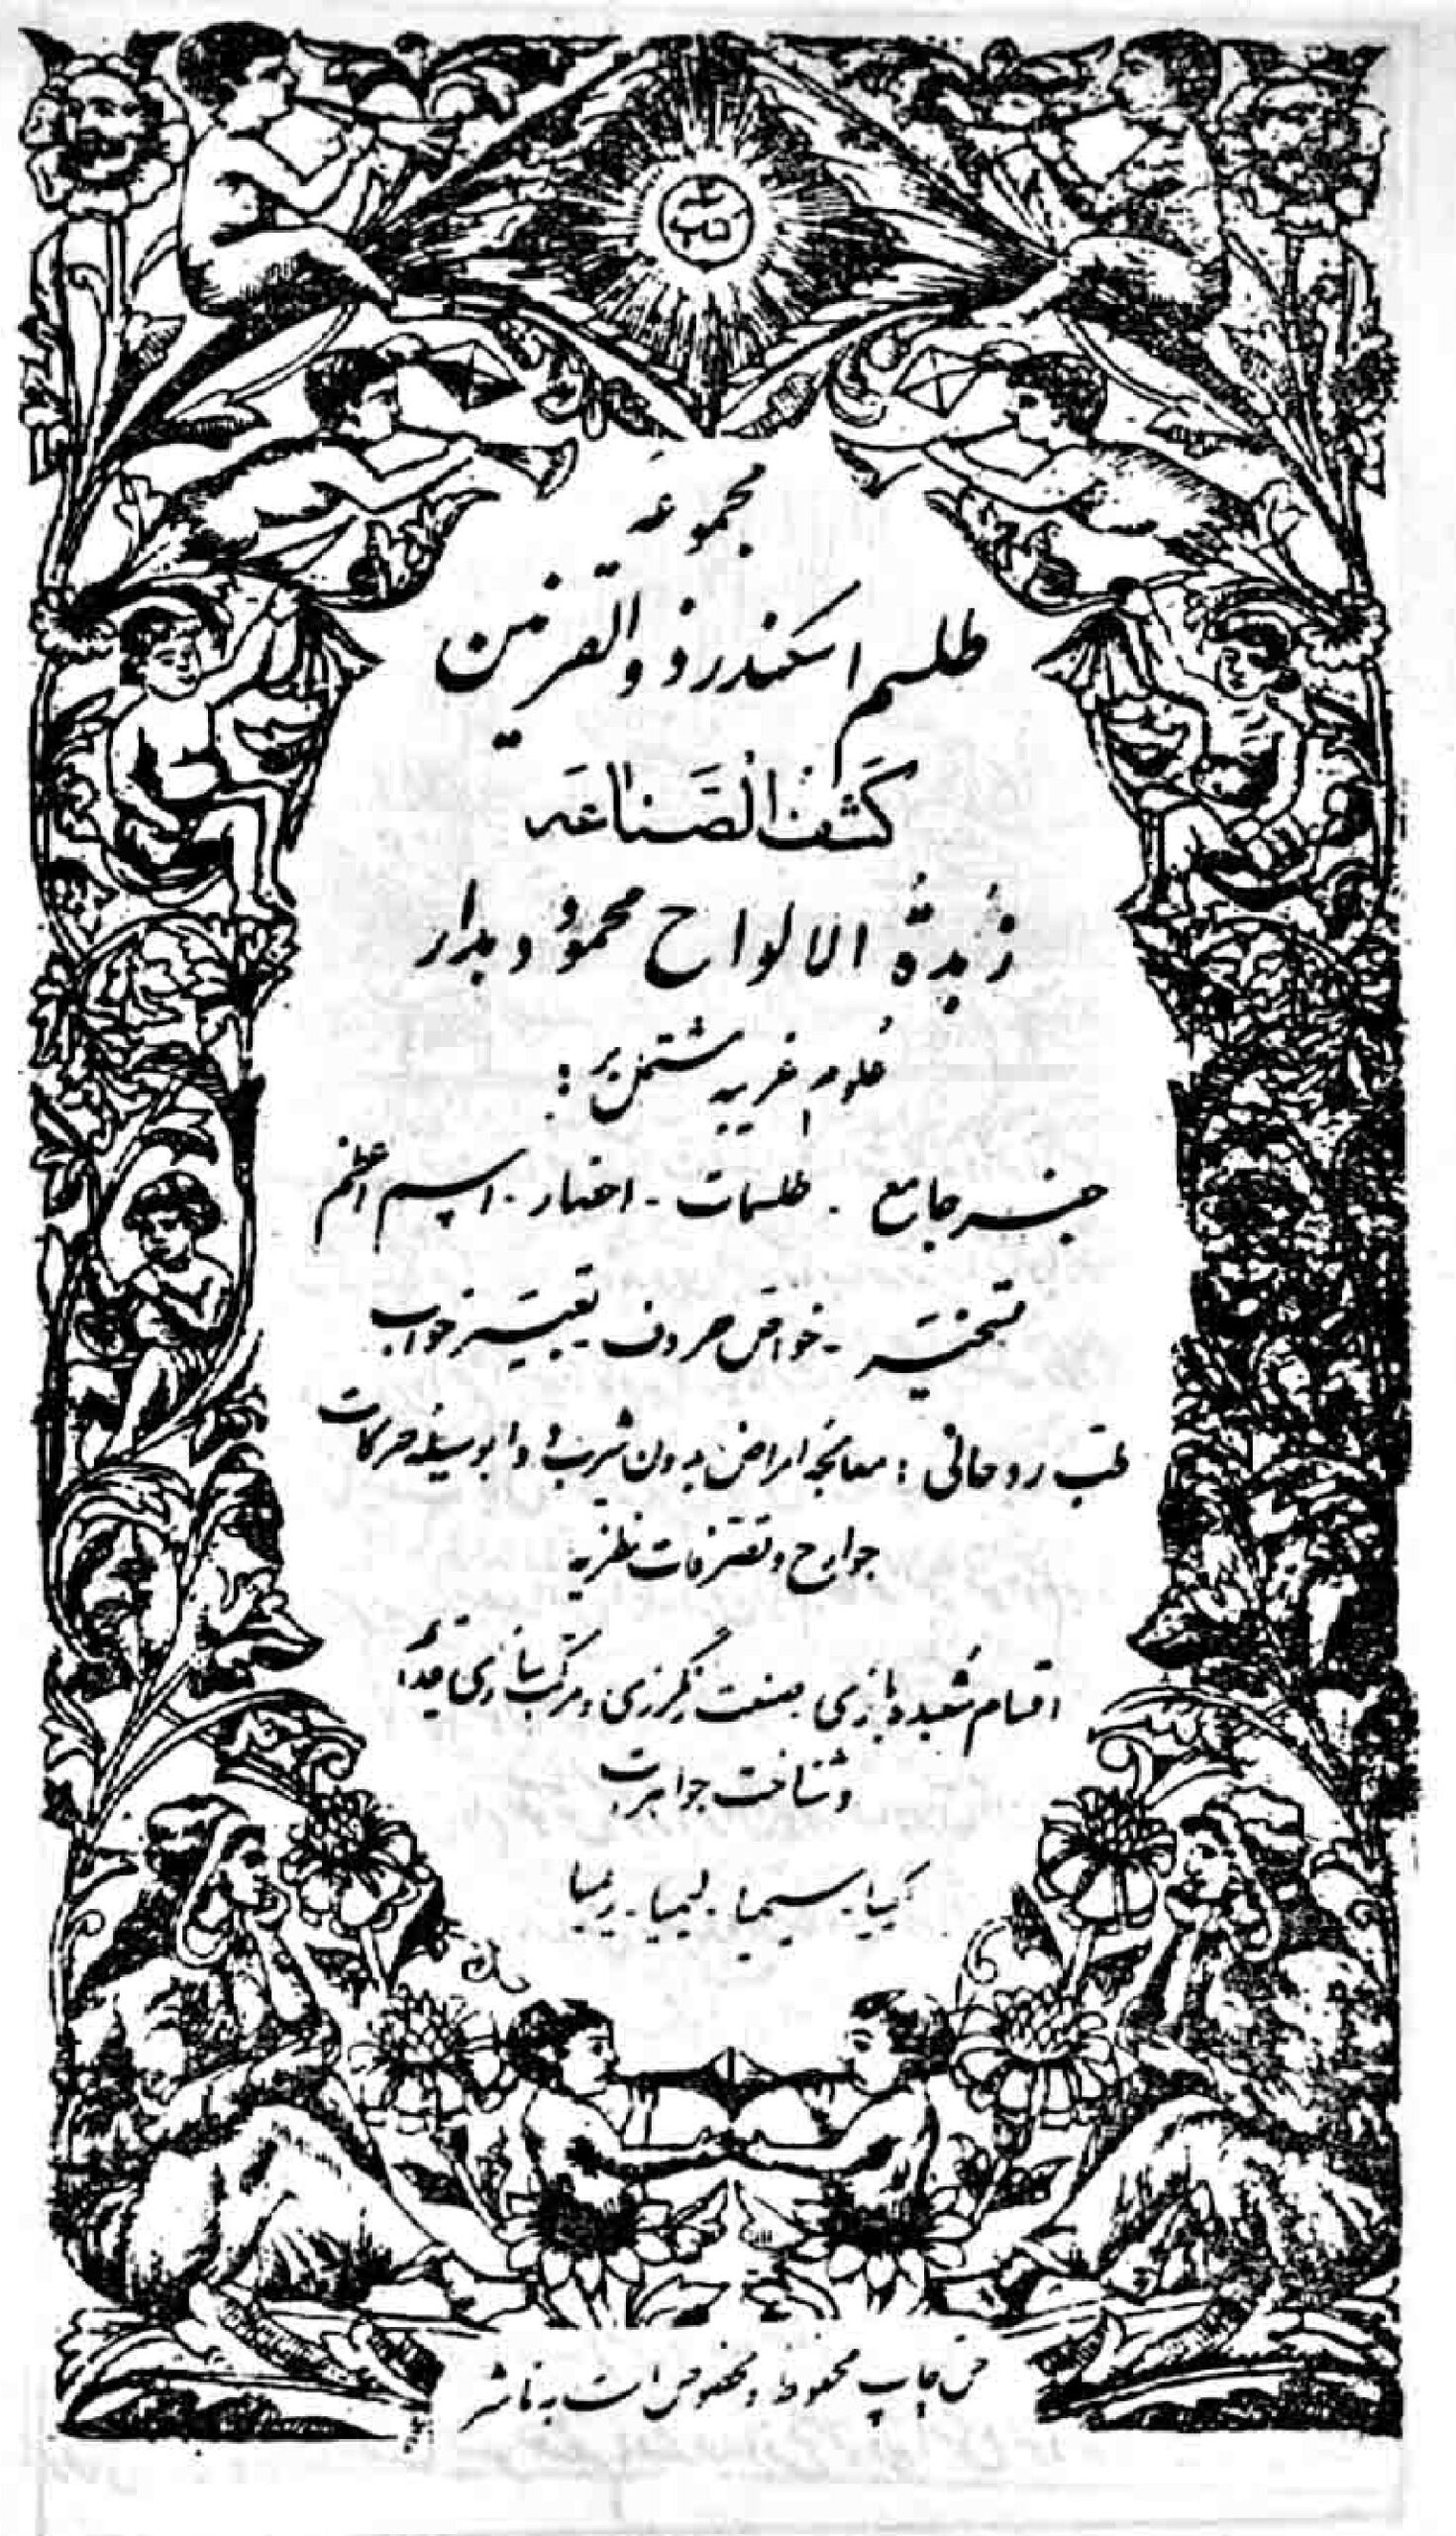 کتاب
مجموعه
طلسم اسکندر ذوالقرنین
کَشفُ الصَناعَه
زُبدةُ الالواح محمُود دهدار
عُلوم غریبه مشتمل بر :
جفر جامع - طلسمات - اختیار - اسم اعظم
تسخیر - خواص حروف - تعبیر خواب
طب روحانی : معالجه امراض بدون شرب دوا بوسیله حرکات
جوارح و تصرفات نظریه
اقسام شعبده بازی صنعت رنگرزی و مرکب سازی قدیم
و شناخت جواهرات
کیمیا - سیمیا - لیمیا - ریمیا
حق چاپ محفوظ و مخصوص است به ناشر